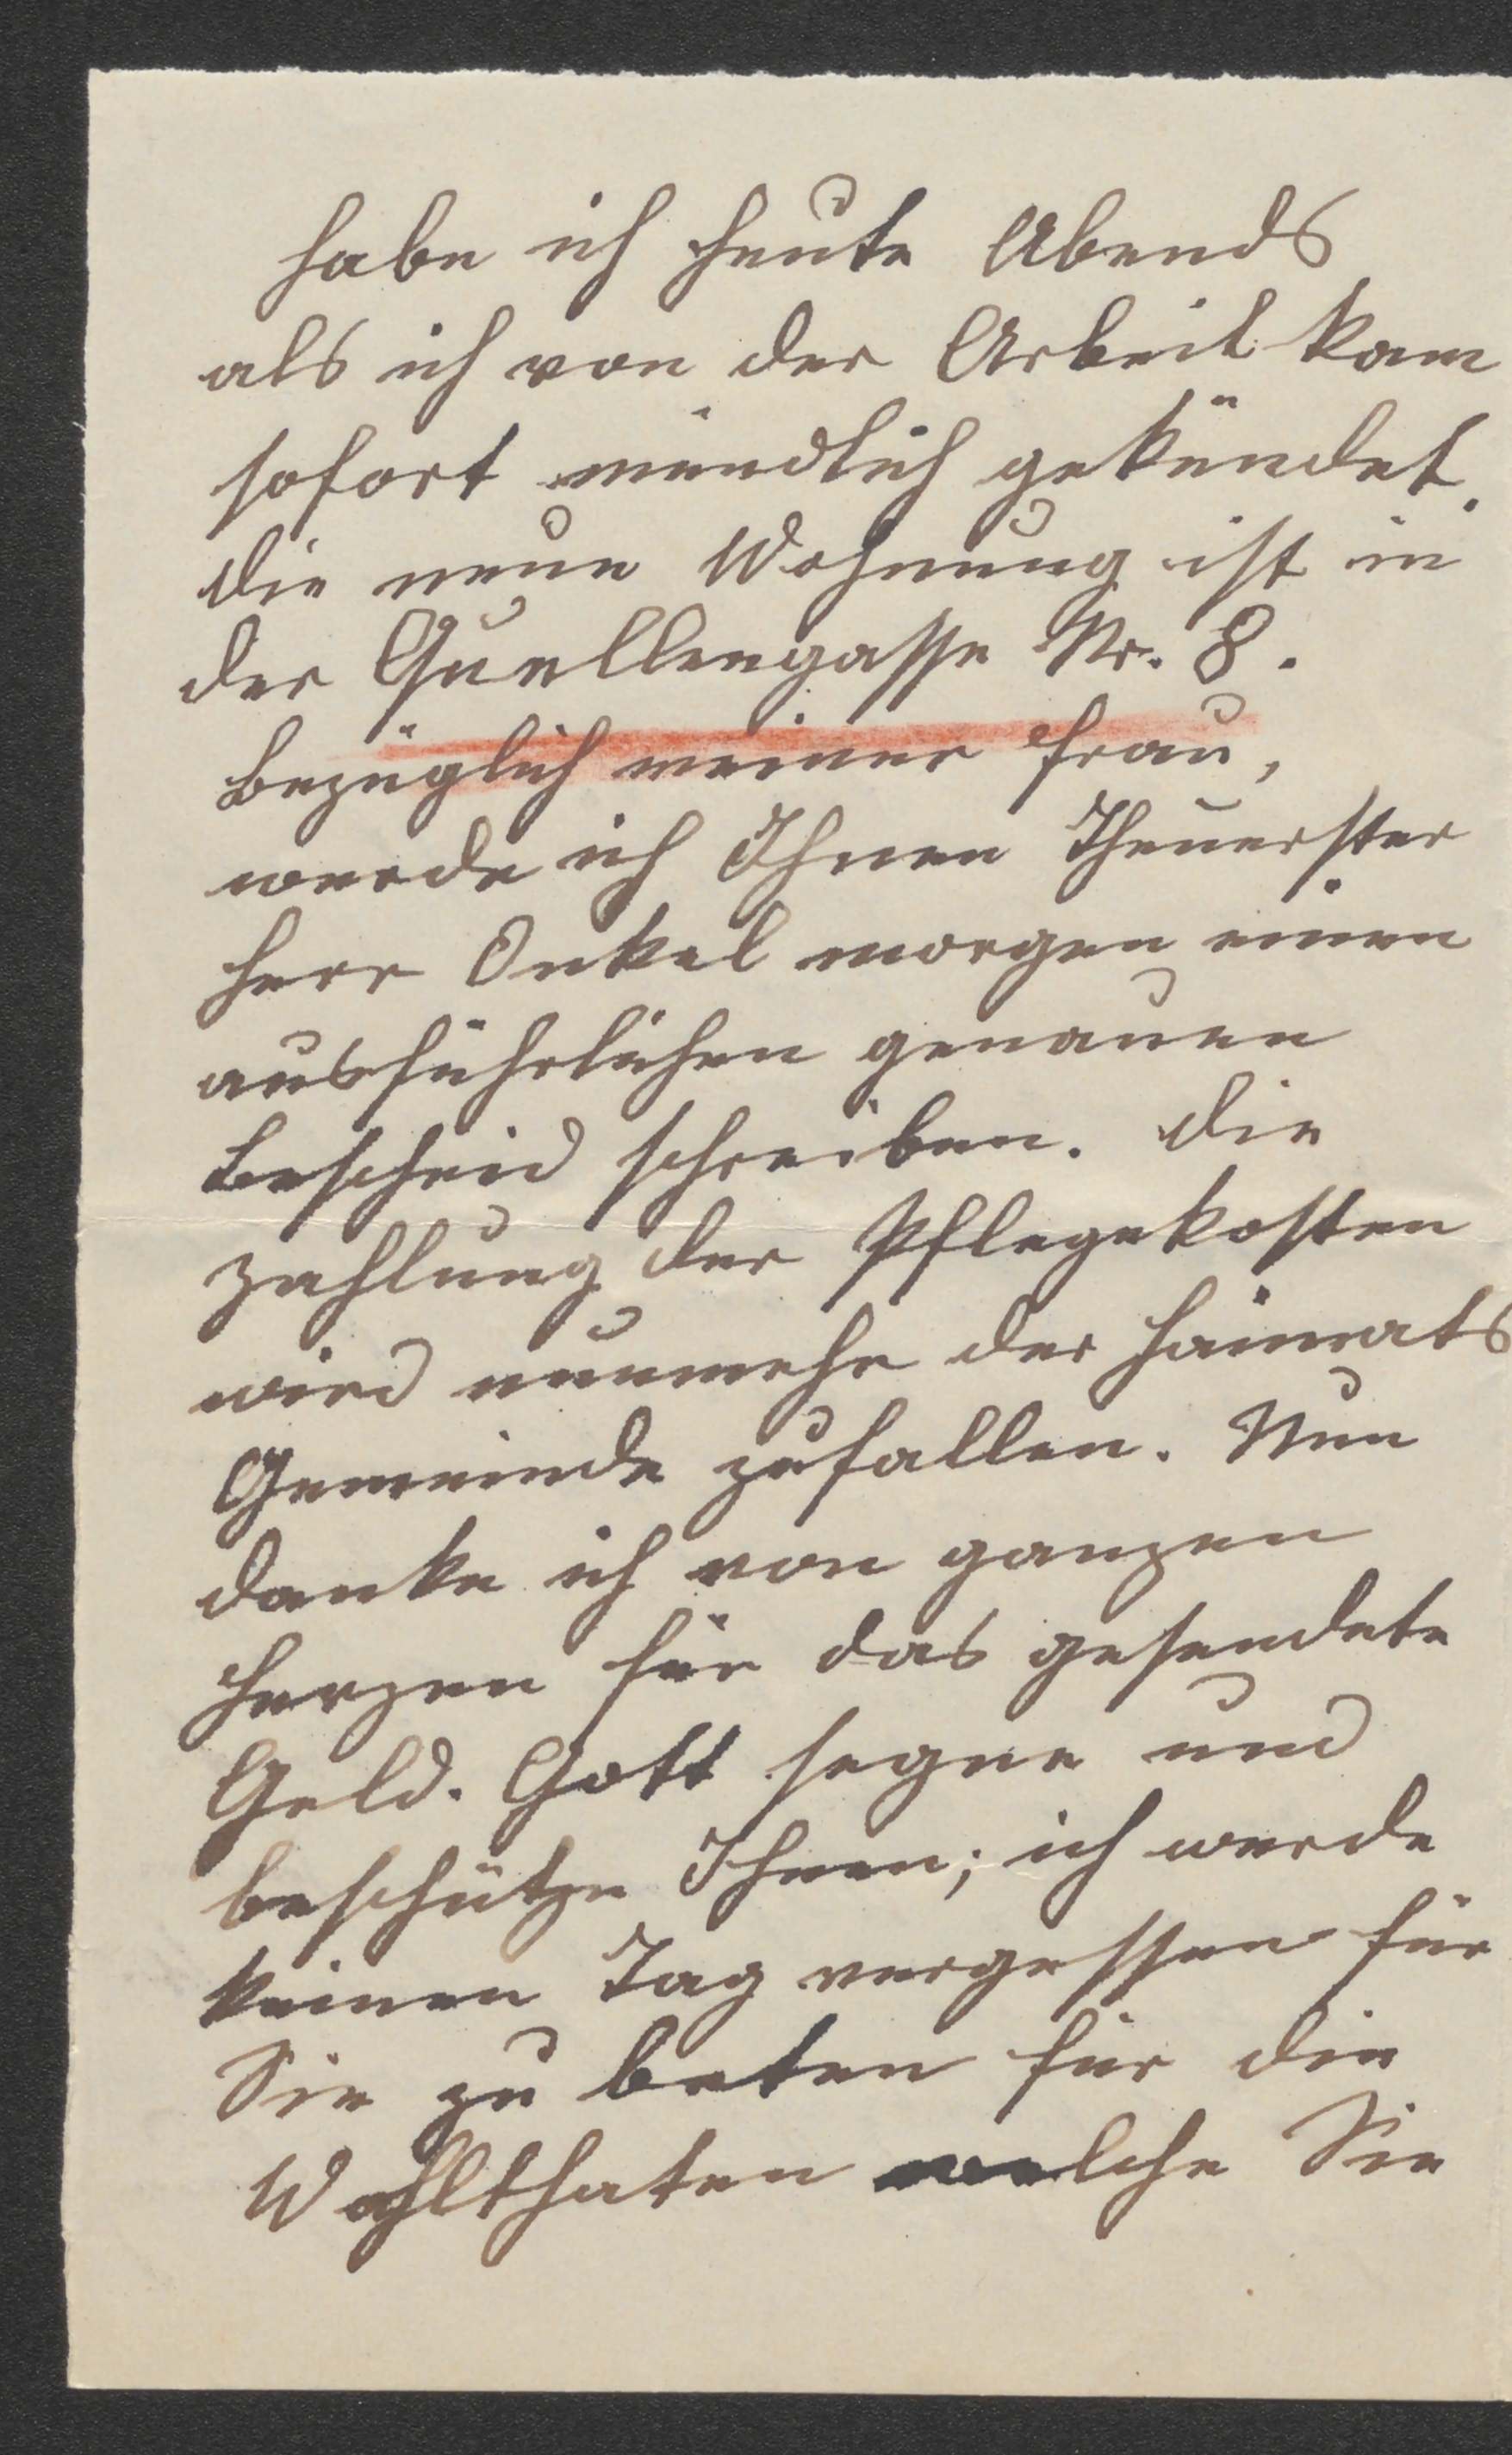 habe ich heute Abends
als ich von der Arbeit kam
sofort mündlich gekündet.
die neue Wohnung ist in
der Quellengasse Nr. 8.
Bezüglich meiner Frau,
werde ich Ihnen Theuerster
Herr Onkel morgen einen
ausführlichen genauen
Bescheid schreiben. Die
Zahlung der Pflegekosten
wird nunmehr der Heimats
Gemeinde zufallen. Nun
danke ich von ganzen
Herzen für das gesendete
Geld. Gott segne und
beschütze Ihnen; ich werde
keinen Tag vergessen für
Sie zu beten für die
Wohlthaten welche Sie